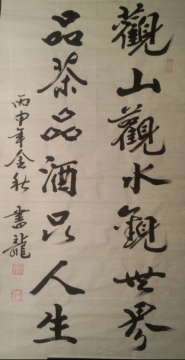 觀山觀水觀世界
品茶品酒品人生
丙申年金秋 書龍